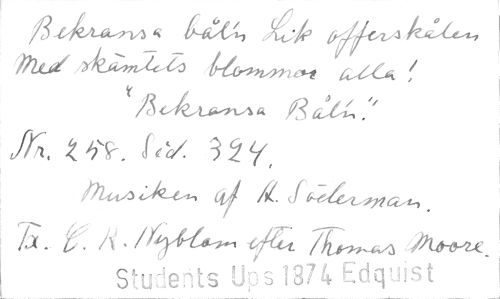 Bekransa bål'n Lik offerskålen
med skämtets blommor alla!
"Bekransa Bål'n."
Nr. 258. Sid. 324.
Musiken af A. Söderman.
Tx. C. R. Nyblom efter Thomas Moore.
Students Ups 1874 Edquist